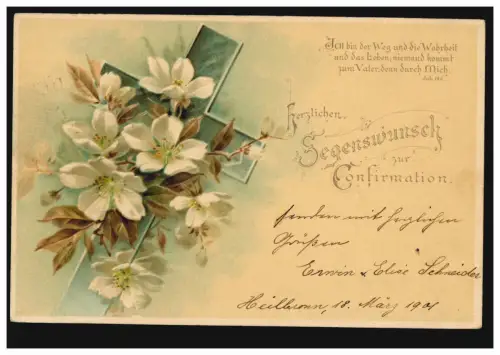 Ich bin der Weg und die Wahrheit
und das Leben, niemand kommt
zum Vater, denn durch Mich.
Joh. 14,6
Herzlichen
Segenswunsch
zur
Confirmation.
senden mit herzlichen
Grüßen
Erwin & Elise Schneider
Heilbronn, 18. März 1901